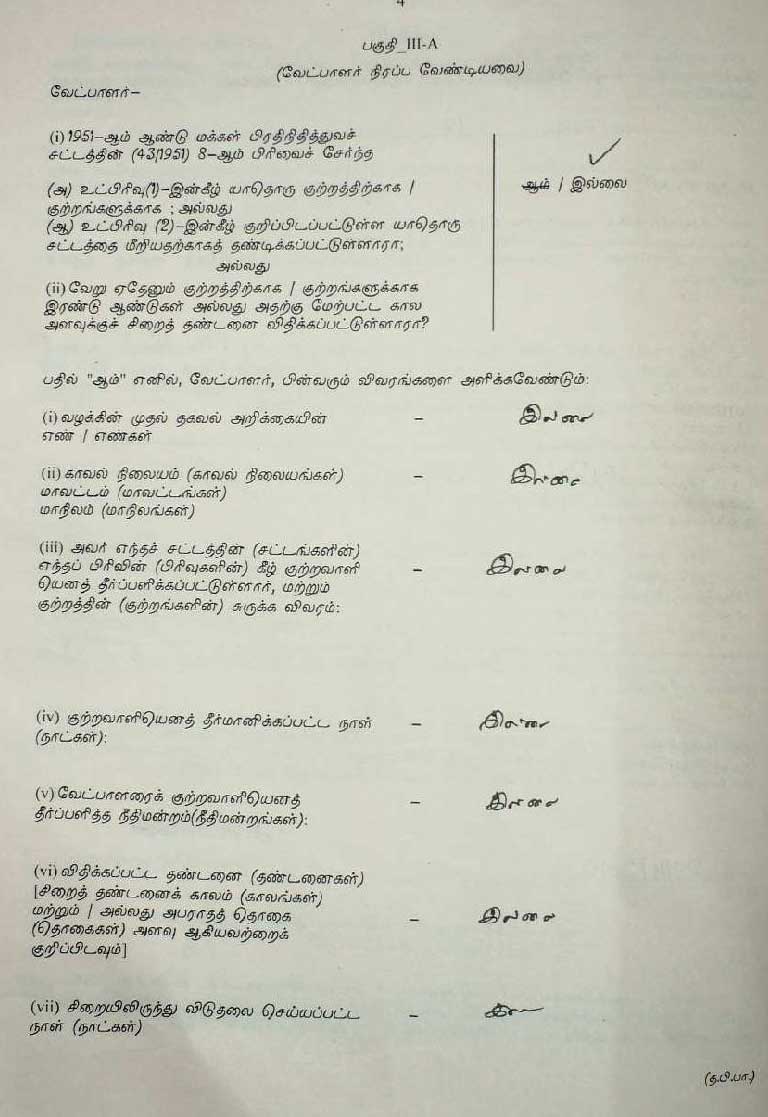 4
பகுதி_III-A
(வேட்பாளர் நிரப்ப வேண்டியவை)
வேட்பாளர்–
(i) 1951–ஆம் ஆண்டு மக்கள் பிரதிநிதித்துவச்
சட்டத்தின் (43/1951) 8–ஆம் பிரிவைச் சேர்ந்த
(அ) உட்பிரிவு(1)–இன்கீழ் யாதொரு குற்றத்திற்காக /
குற்றங்களுக்காக ; அல்லது
(ஆ) உட்பிரிவு (2)–இன்கீழ் குறிப்பிடப்பட்டுள்ள யாதொரு
சட்டத்தை மீறியதற்காகத் தண்டிக்கப்பட்டுள்ளாரா;
அல்லது
(ii) வேறு ஏதேனும் குற்றத்திற்காக / குற்றங்களுக்காக
இரண்டு ஆண்டுகள் அல்லது அதற்கு மேற்பட்ட கால
அளவுக்குச் சிறைத் தண்டனை விதிக்கப்பட்டுள்ளாரா?
ஆம் / இல்லை
பதில் "ஆம்" எனில், வேட்பாளர், பின்வரும் விவரங்களை அளிக்கவேண்டும்:
(i) வழக்கின் முதல் தகவல் அறிக்கையின் – இல்லை
எண் / எண்கள்
(ii) காவல் நிலையம் (காவல் நிலையங்கள்) – இல்லை
மாவட்டம் (மாவட்டங்கள்)
மாநிலம் (மாநிலங்கள்)
(iii) அவர் எந்தச் சட்டத்தின் (சட்டங்களின்)
எந்தப் பிரிவின் (பிரிவுகளின்) கீழ் குற்றவாளி – இல்லை
யெனத் தீர்ப்பளிக்கப்பட்டுள்ளார், மற்றும்
குற்றத்தின் (குற்றங்களின்) சுருக்க விவரம்:
(iv) குற்றவாளியெனத் தீர்மானிக்கப்பட்ட நாள் – இல்லை
(நாட்கள்):
(v) வேட்பாளரைக் குற்றவாளியெனத் – இல்லை
தீர்ப்பளித்த நீதிமன்றம்(நீதிமன்றங்கள்):
(vi) விதிக்கப்பட்ட தண்டனை (தண்டனைகள்)
[சிறைத் தண்டனைக் காலம் (காலங்கள்)
மற்றும் / அல்லது அபராதத் தொகை – இல்லை
(தொகைகள்) அளவு ஆகியவற்றைக்
குறிப்பிடவும்]
(vii) சிறையிலிருந்து விடுதலை செய்யப்பட்ட –
நாள் (நாட்கள்)
(த.பி.பா.)